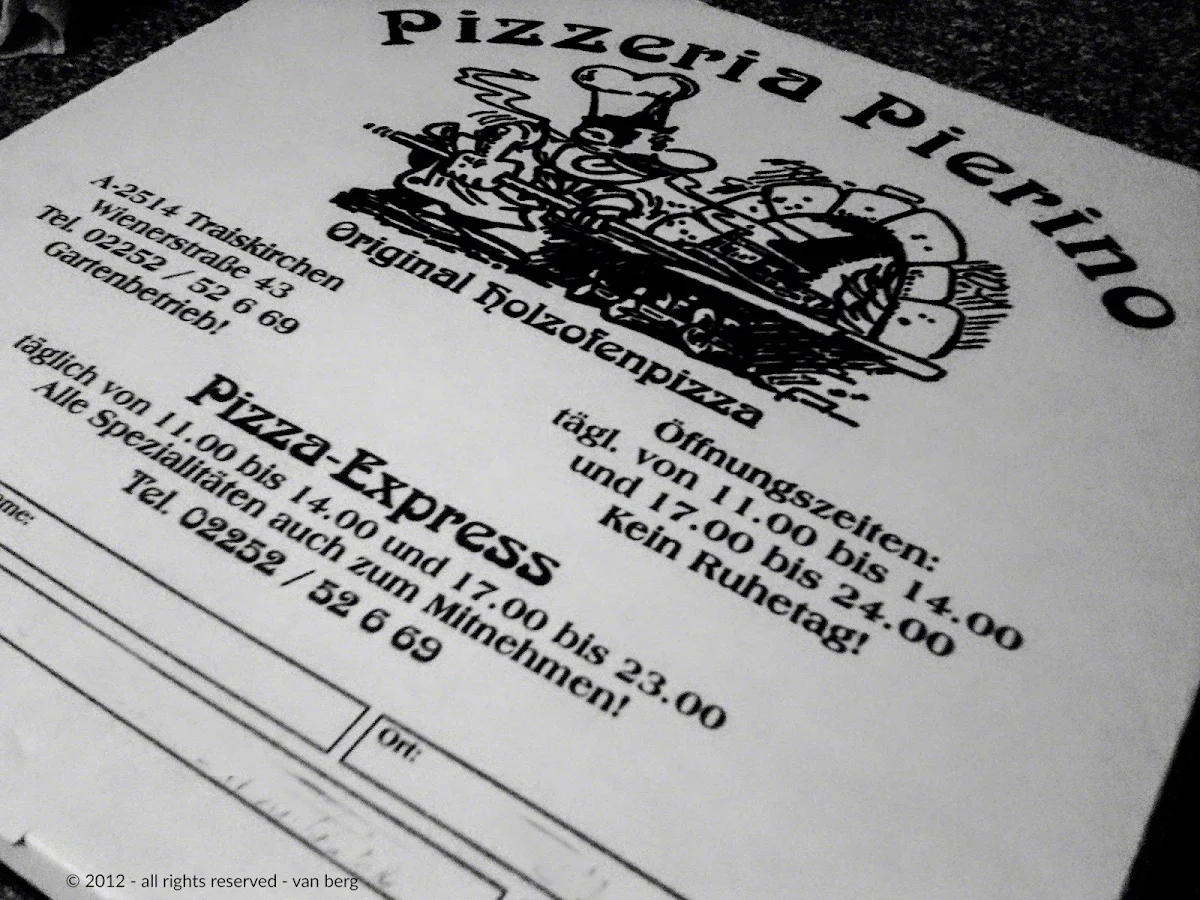 Pizzeria Pierino
Original Holzofenpizza
A-2514 Traiskirchen
Wienerstraße 43
Tel. 02252 / 52 6 69
Gartenbetrieb!
Öffnungszeiten:
tägl. von 11.00 bis 14.00
und 17.00 bis 24.00
Kein Ruhetag!
Pizza-Express
täglich von 11.00 bis 14.00 und 17.00 bis 23.00
Alle Spezialitäten auch zum Mitnehmen!
Tel. 02252 / 52 6 69
Ort:
© 2012 - all rights reserved - van berg